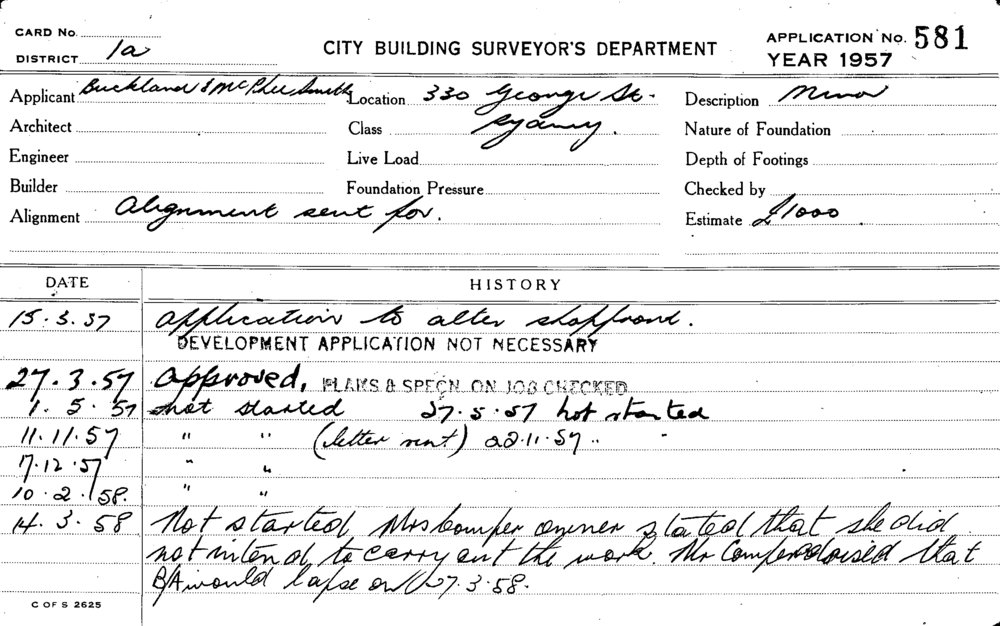 CARD No.
DISTRICT 1a
CITY BUILDING SURVEYOR'S DEPARTMENT
APPLICATION No. 581
YEAR 1957
Applicant Buckland & McPhee Smith Location 330 George St. Description Minor
Architect Class Sydney. Nature of Foundation
Engineer Live Load Depth of Footings
Builder Foundation Pressure Checked by
Alignment Alignment sent for. Estimate £1000
DATE HISTORY
15.3.57 Application to alter shopfront.
DEVELOPMENT APPLICATION NOT NECESSARY
27.3.57 Approved. PLANS & SPECN. ON JOB CHECKED
1.5.57 not started 27.5.57 not started
11.11.57 " " (letter sent) 22.11.57 " "
7.12.57 " "
10.2.58. " "
14.3.58 Not started Mrs owner stated that she did
not intend to carry out the work. Mr advised that
BA would lapse on 27.3.58.
C OF S 2625